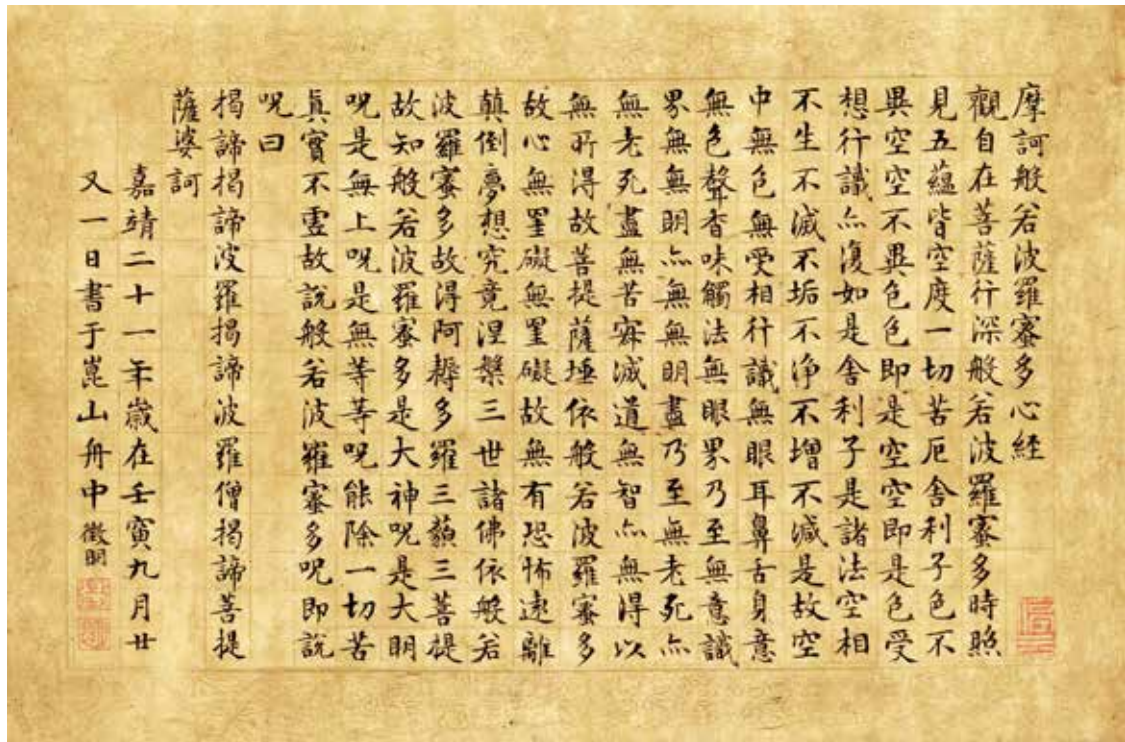 摩訶般若波羅蜜多心經
觀自在菩薩行深般若波羅蜜多時照
見五蘊皆空度一切苦厄舍利子色不
異空空不異色色即是空空即是色受
想行識亦復如是舍利子是諸法空相
不生不滅不垢不淨不增不減是故空
中無色無受相行識無眼耳鼻舌身意
無色聲香味觸法無眼界乃至無意識
界無無明亦無無明盡乃至無老死亦
無老死盡無苦寂滅道無智亦無得以
無所得故菩提薩埵依般若波羅蜜多
故心無罣礙無罣礙故無有恐怖遠離
顛倒夢想究竟涅槃三世諸佛依般若
波羅蜜多故得阿耨多羅三藐三菩提
故知般若波羅蜜多是大神呪是大明
呪是無上呪是無等等呪能除一切苦
真實不虛故說般若波羅蜜多呪即說
呪曰
揭諦揭諦波羅揭諦波羅僧揭諦菩提
薩婆訶
嘉靖二十一年歲在壬寅九月廿
又一日書于崑山舟中徵明